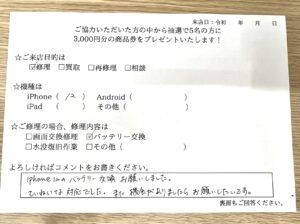 来店日：令和　　年　　月　　日
ご協力いただいた方の中から抽選で5名の方に
3,000円分の商品券をプレゼントいたします！
☆ご来店目的は
☑修理　□買取　□再修理　□相談
☆機種は
iPhone（ 12 ）Android（　　　）
iPad（　　　）その他（　　　）
☆ご修理の場合、修理内容は
□画面交換修理　☑バッテリー交換
□水没復旧作業　□その他（　　　）
よろしければコメントをお書きください。
iphone12の バッテリー交換 お願いしました。
ていねいな 対応でした。また 機会がありましたら お願いしたいです。
裏面もご回答ください。